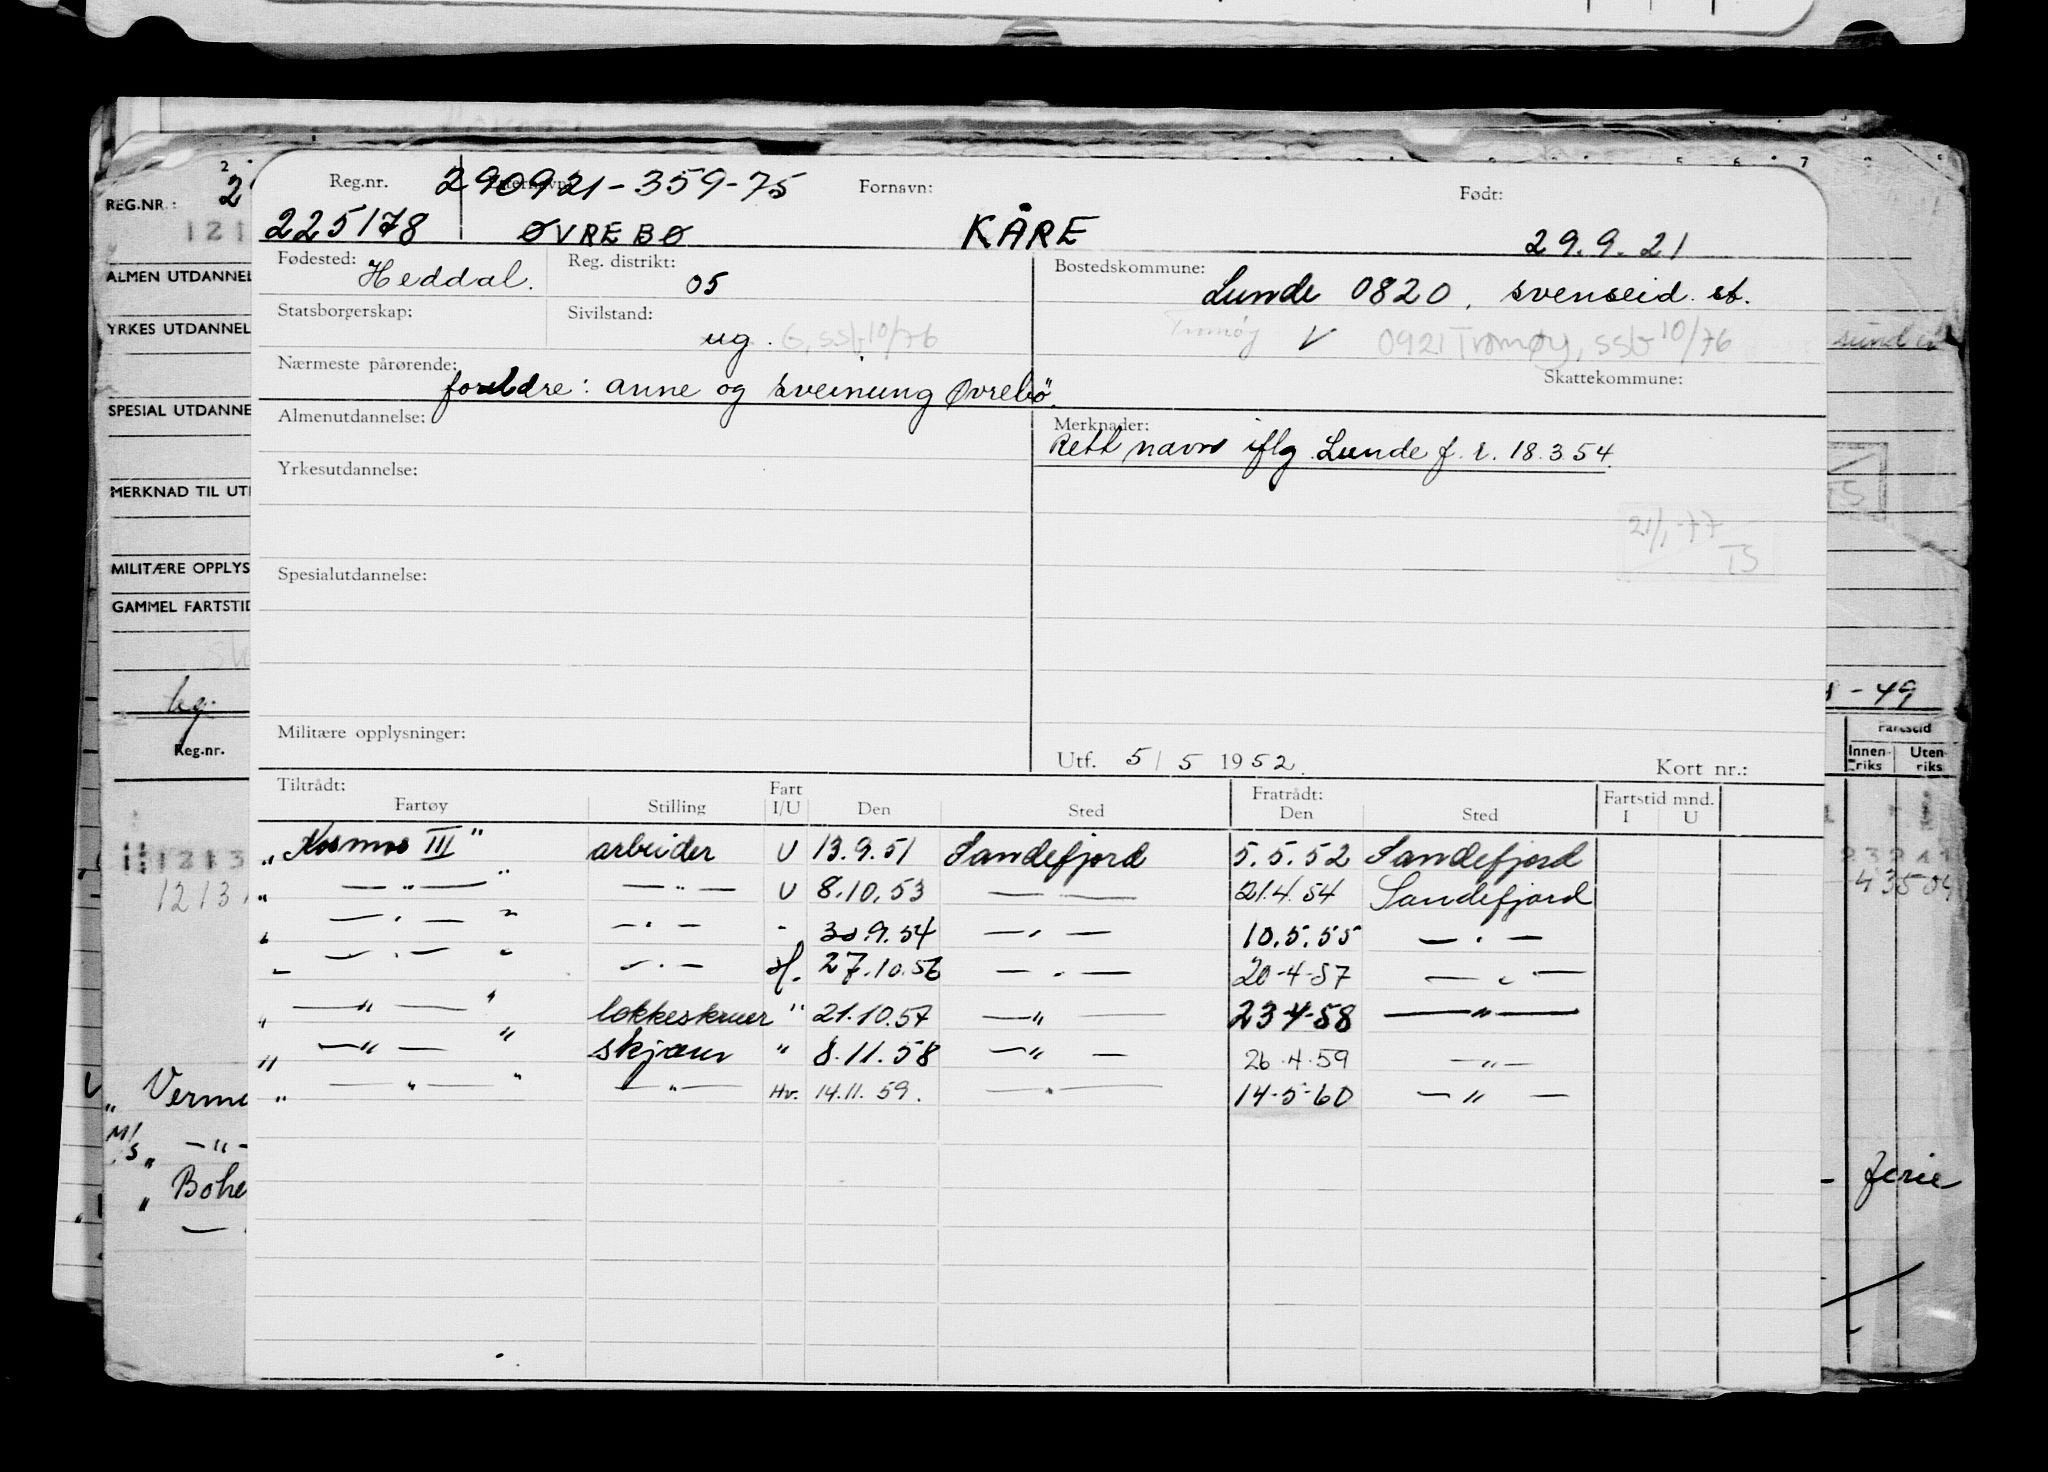 REG.NR.: 2
121
ALMEN UTDANNEL
YRKES UTDANNEL
SPESIAL UTDANNE
MERKNAD TIL UT
MILITÆRE OPPLYS
GAMMEL FARTSTID
ug.
Reg.nr.
1213
1213
Verm
M/S —"—
" Bohe
Reg.nr. 290921-359-75 Fornavn: Født:
225178 ØVREBØ KÅRE 29.9.21
Fødested: Heddal. Reg. distrikt: 05 Bostedskommune: Lunde 0820, svenseid st.
Statsborgerskap: Sivilstand: ug. G, ssb 10/76 Tromøy V 0921 Tromøy, ssb 10/76
Nærmeste pårørende: foreldre: anne og sveinung Øvrebö. Skattekommune:
Almenutdannelse: Merknader: Rett navn iflg. Lunde f. r. 18.3.54.
Yrkesutdannelse:
21/1-77 TS
Spesialutdannelse:
Militære opplysninger:
Utf. 5/5 1952. Kort nr.:
Tiltrådt: Fart Fratrådt: Fartstid mnd.
Fartøy Stilling I/U Den Sted Den Sted I U
"Kosmos III" arbeider U 13.9.51 Sandefjord 5.5.52 Sandefjord
" —"— " —"— U 8.10.53 — — 21.4.54 Sandefjord
" —"— " —"— - 30.9.54 —"— 10.5.55 —"—
" —"— " —"— Hf. 27.10.56 —"— 20-4-57 —"—
" —"— " lokkeskruer " 21.10.57 —"— 23-4-58 —"—
" —"— " skjærer " 8.11.58 —"— 26.4.59 —"—
" —"— " —"— Hv. 14.11.59. —"— 14-5-60 —"—
- 49
Fartstid
Innen-riks Uten-riks
43504
- ferie